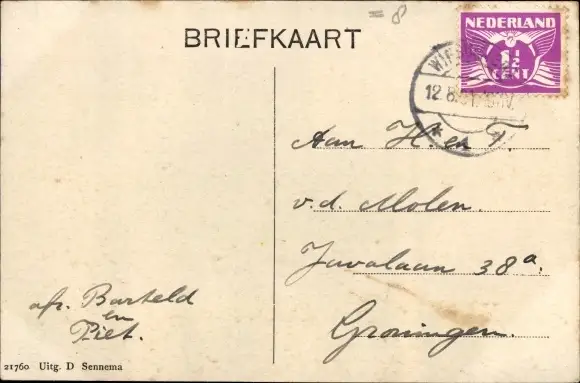 = 8
BRIEFKAART
NEDERLAND
1½
CENT
12.8.
Aan H. en F.
v.d. Molen.
Javalaan 38a.
Groningen.
afz. Barteld
en
Piet.
21760 Uitg. D Sennema